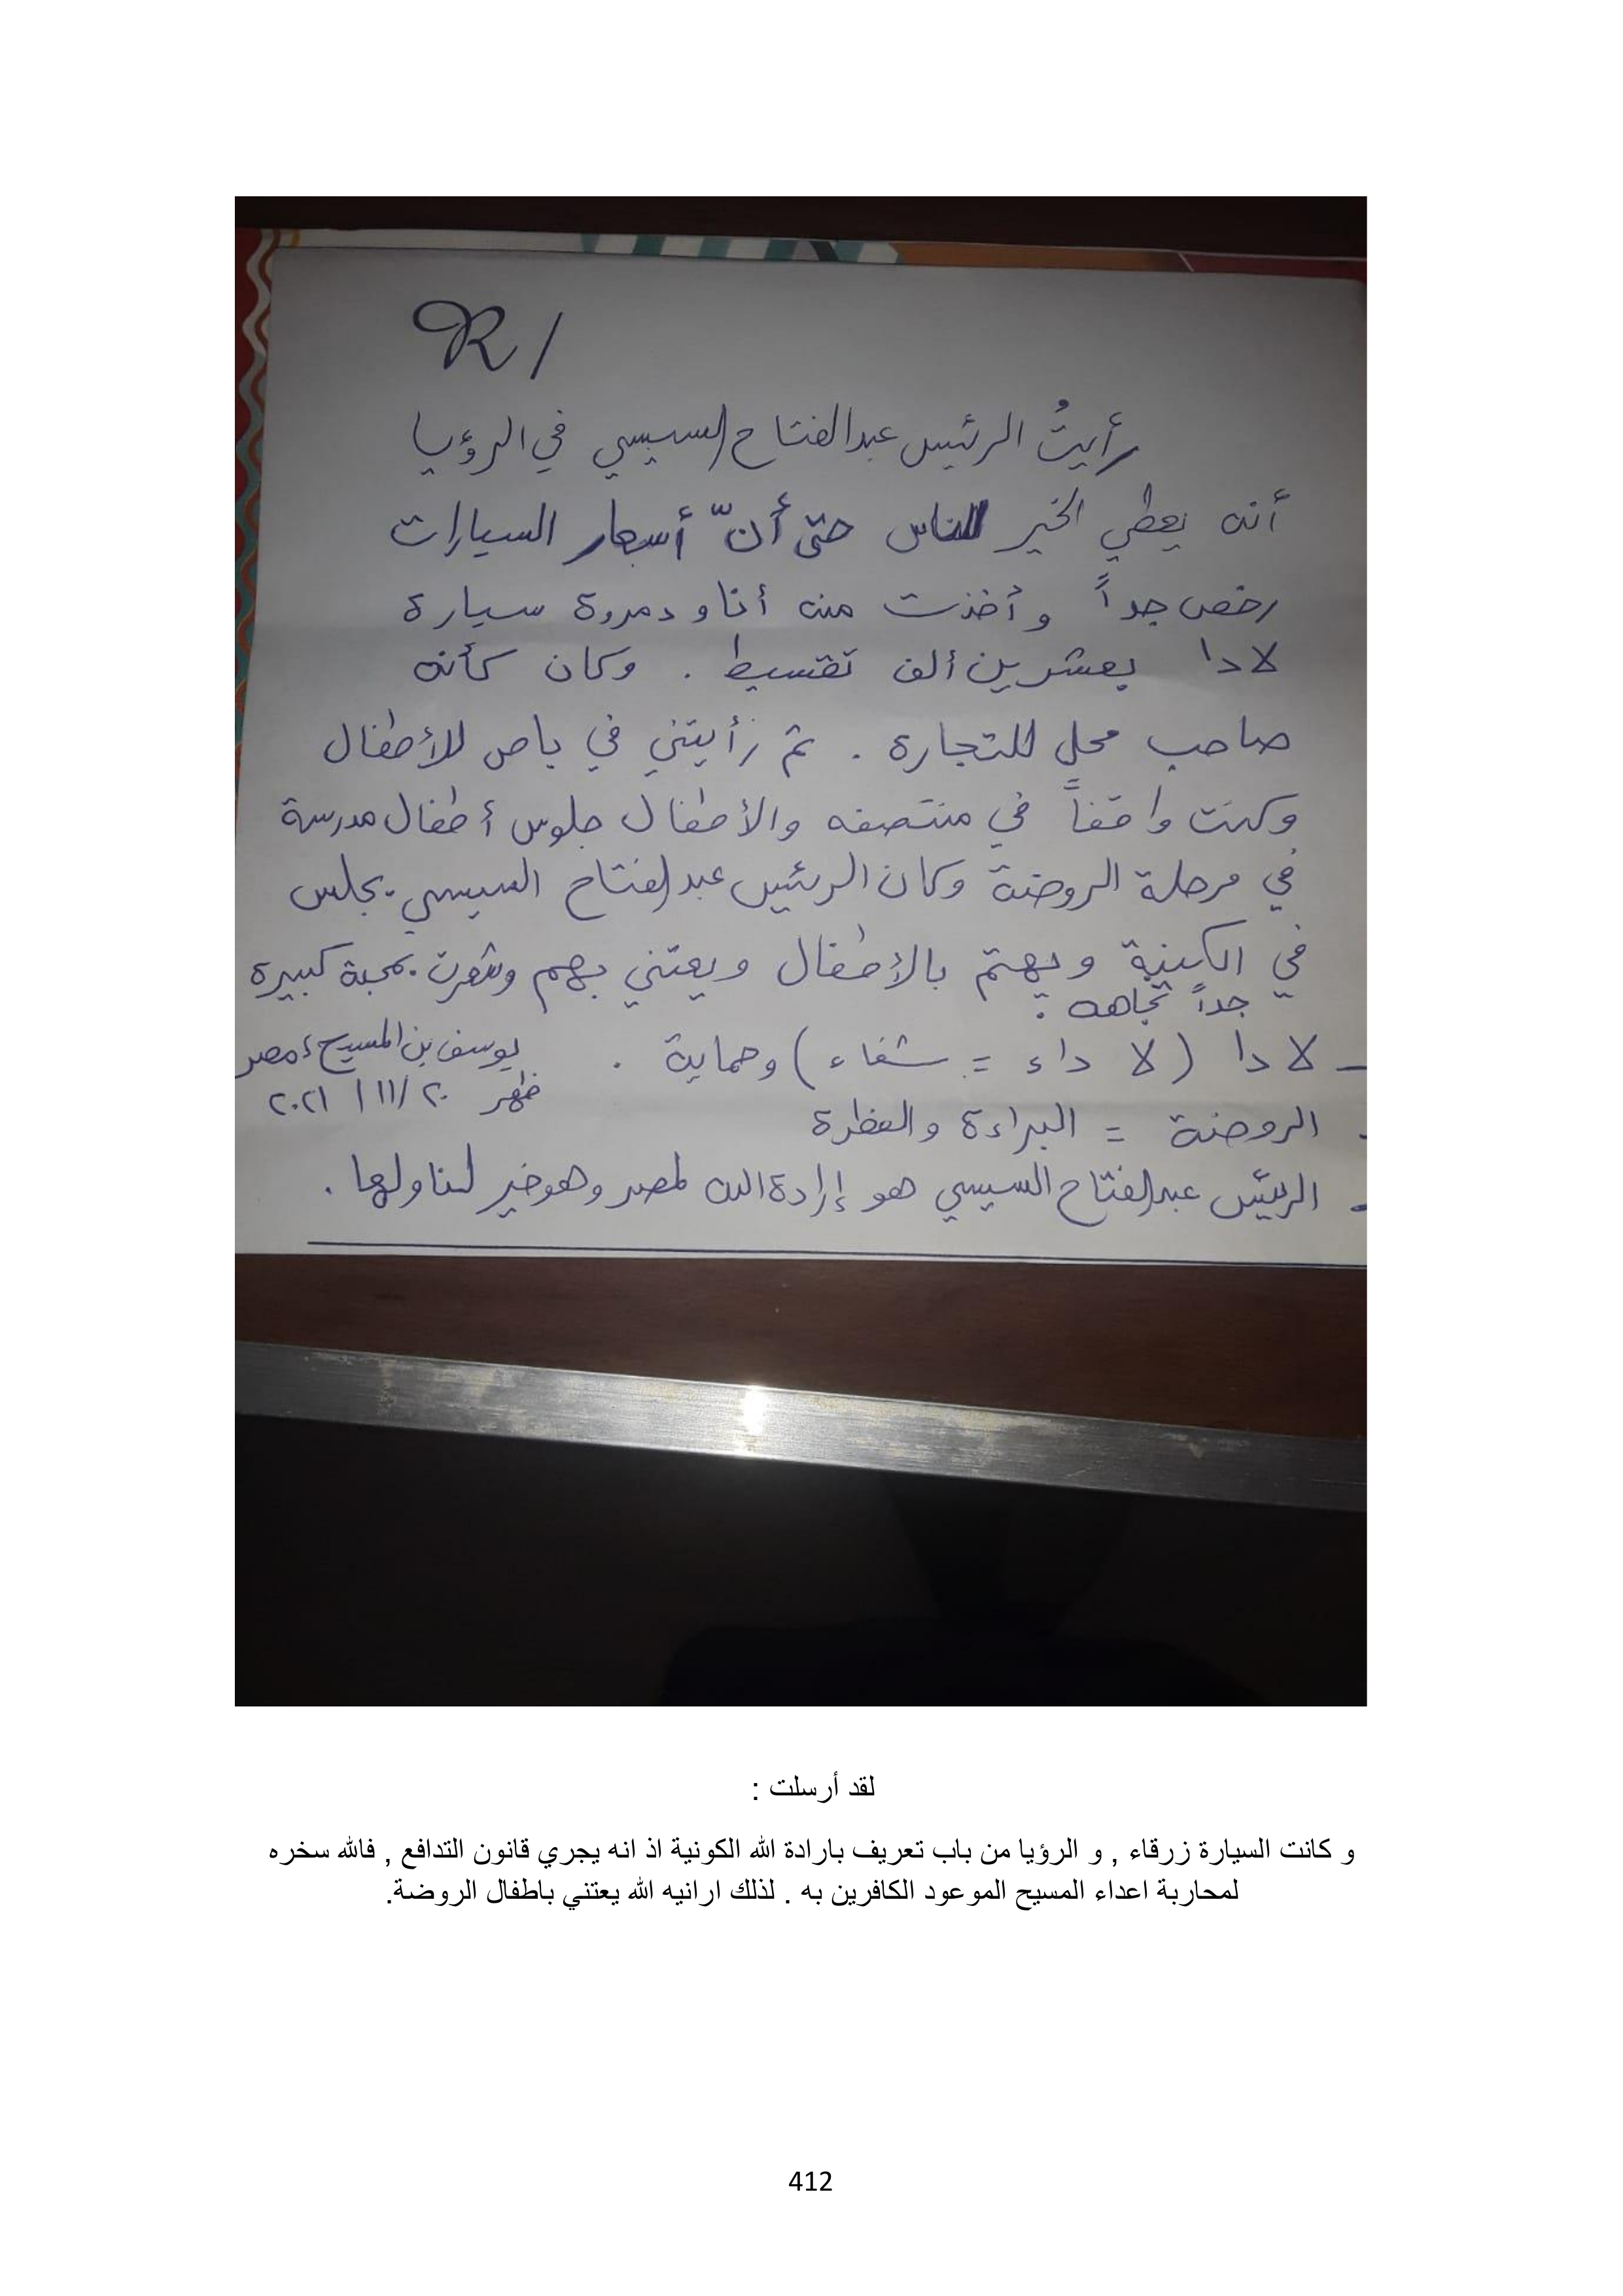 R/
رأيتُ الرئيس عبدالفتاح السيسي في الرؤيا
أنه يعطي الخير للناس حتى أنّ أسعار السيارات
رخص جداً وأخذت منه أنا ود مروة سيارة
لادا بعشرين ألف تقسيط . وكان كأنه
صاحب محل للتجارة . ثم رأيتني في باص للأطفال
وكنت واقفاً في منتصفه والأطفال جلوس أطفال مدرسة
في مرحلة الروضة وكان الرئيس عبدالفتاح السيسي يجلس
في الكبينة ويهتم بالأطفال ويعتني بهم وشعرت بمحبة كبيرة
جداً تجاهه .
_ لادا ( لا داء = شفاء ) وحماية .
يوسف بن المسيح ، مصر
ظهر ٢٠ / ١١ / ٢٠٢١
. الروضة = البراءة والفطرة
. الرئيس عبدالفتاح السيسي هو إرادة الله لمصر وهو خير لنا ولها .
لقد أرسلت :
و كانت السيارة زرقاء , و الرؤيا من باب تعريف بارادة الله الكونية اذ انه يجري قانون التدافع , فالله سخره
لمحاربة اعداء المسيح الموعود الكافرين به . لذلك ارانيه الله يعتني باطفال الروضة.
412